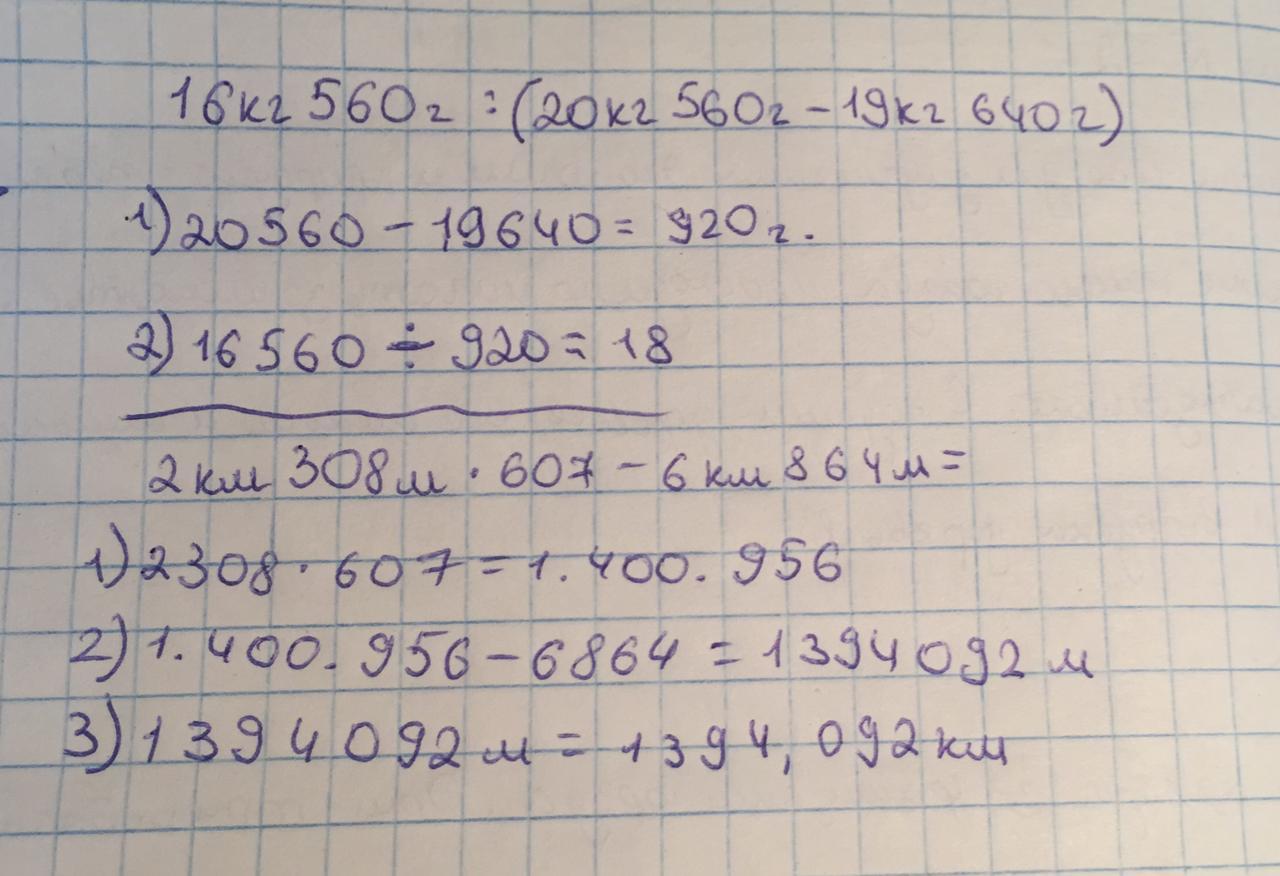 16кг 560г : (20кг 560г - 19кг 640г)
1) 20560 - 19640 = 920г.
2) 16560 ÷ 920 = 18
2км 308м · 607 - 6км 864м =
1) 2308 · 607 = 1.400.956
2) 1.400.956 - 6864 = 1394092м
3) 1394092м = 1394,092км